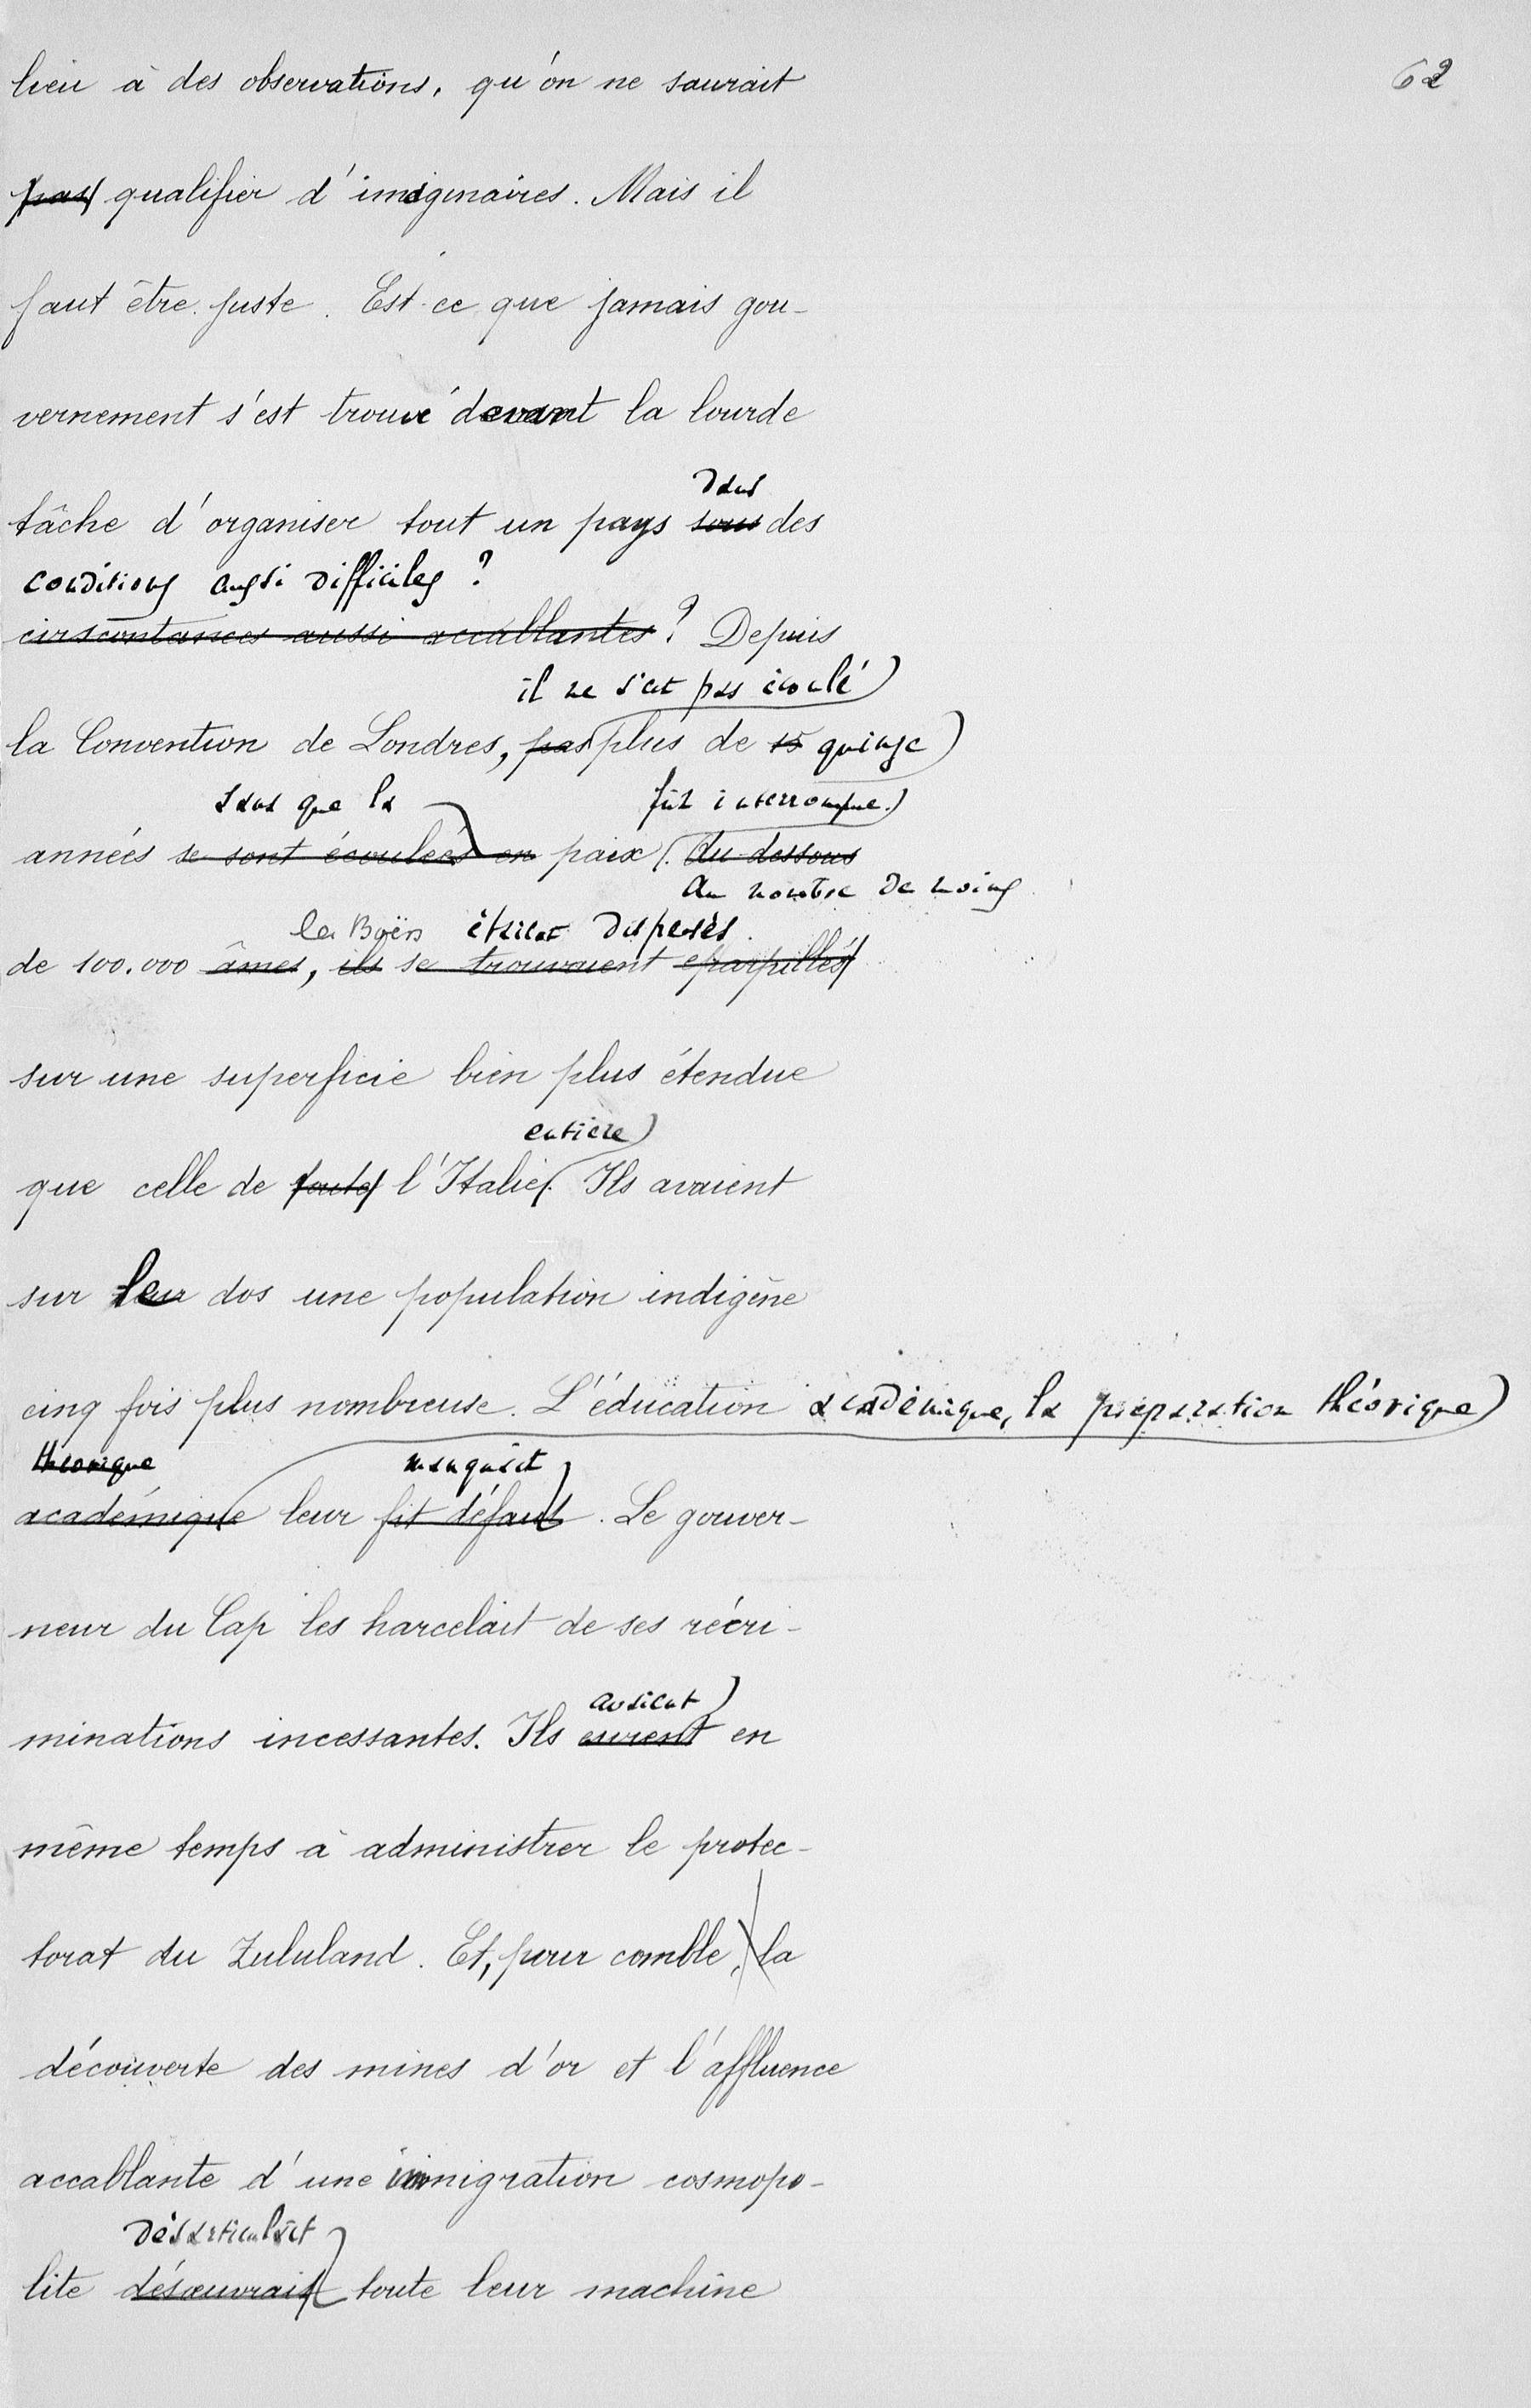 lieu à des observations, qu'on ne saurait
62
pas qualifier d'imaginaires. Mais il
faut être juste. Est-ce que jamais gou-
vernement s'est trouvé devant la lourde
dans
tâche d'organiser tout un pays sous des
conditions aussi difficiles ?
circontances aussi accablantes ? Depuis
il ne s'est pas écoulé
la Convention de Londres, pas plus de 15 quinze
sans que la fût interrompue.
années se sont écoulées en paix. Au-dessous
Au nombre de moins
les Boërs étaient dispersés.
de 100.000 âmes, ils se trouvaient eparpillés
sur une superficie bien plus étendue
entière
que celle de toute l'Italie. Ils avaient
sur leur dos une population indigène
cinq fois plus nombreuse. L'éducation académique, la préparation théorique
théorique manquait
académique leur fit défaut. Le gouver-
neur du Cap les harcelait de ses récri-
avaient
minations incessantes. Ils eurent en
même temps à administrer le protec-
torat du Zululand. Et, pour comble, la
découverte des mines d'or et l'affluence
accablante d'une immigration cosmopo-
désarticulait
lite désœuvrait toute leur machine